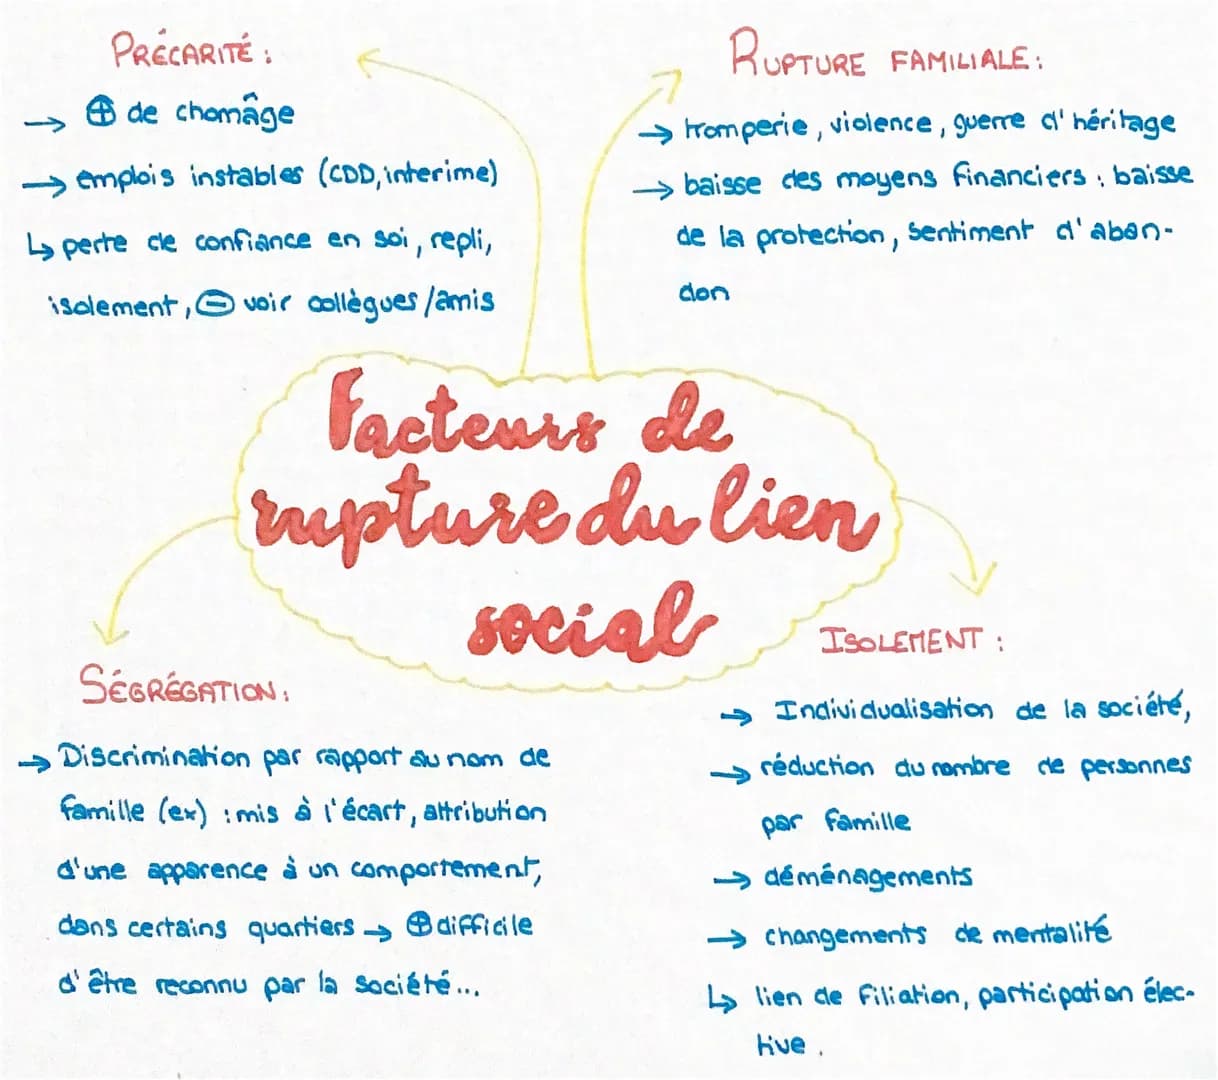 PRÉCARITÉ :
→ ⊕ de chomâge
→ emplois instables (CDD, interime)
↳ perte de confiance en soi, repli,
isolement, ⊖ voir collègues/amis
RUPTURE FAMILIALE :
→ tromperie, violence, guerre d'héritage
→ baisse des moyens financiers : baisse
de la protection, sentiment d'aban-
don
Facteurs de
rupture du lien
social
SÉGRÉGATION :
→ Discrimination par rapport au nom de
famille (ex) : mis à l'écart, attribution
d'une apparence à un comportement,
dans certains quartiers → ⊕ difficile
d'être reconnu par la société...
ISOLEMENT :
→ Individualisation de la société,
→ réduction du nombre de personnes
par famille
→ déménagements
→ changements de mentalité
↳ lien de filiation, participation élec-
tive.